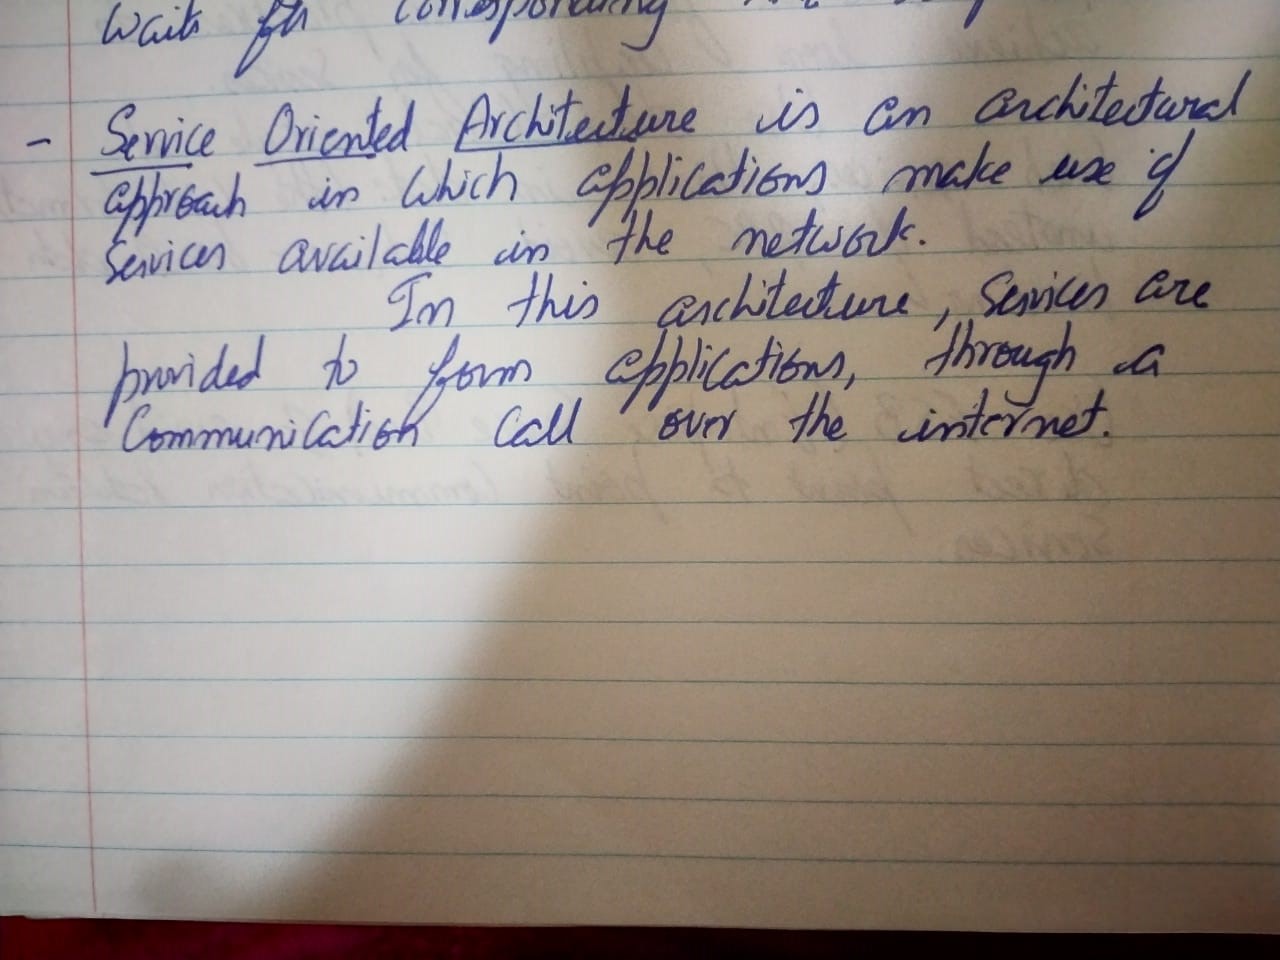 wait for corresponding
- Service Oriented Architecture is an architectural
approach in which applications make use of
services available in the network.
In this architecture, services are
provided to form applications, through a
Communication call over the internet.